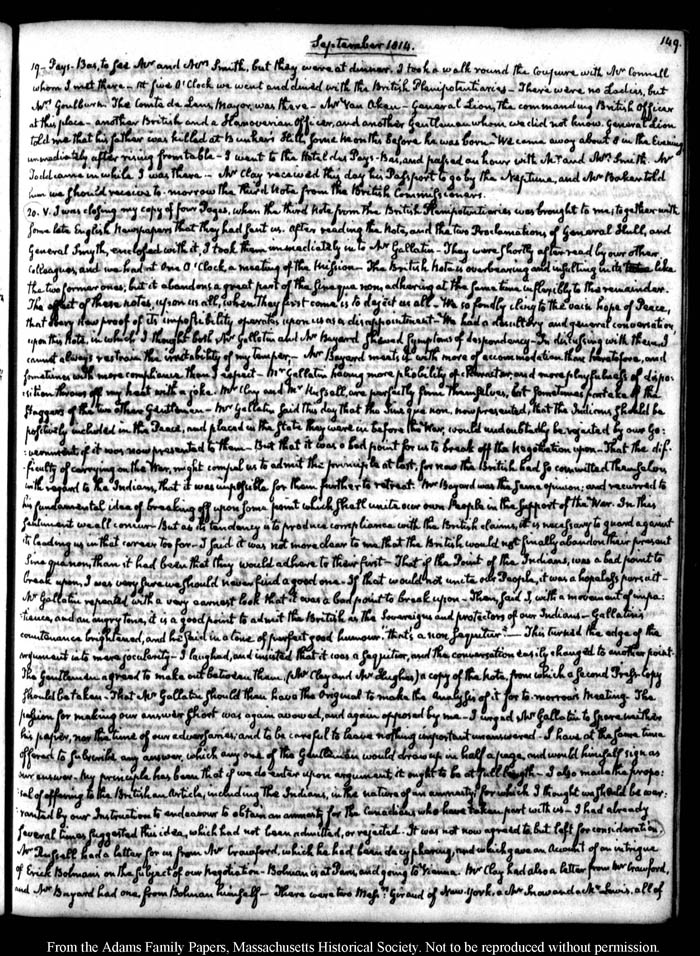 149.
September 1814.
19 - Pays-Bas, to see Mr and Mrs Smith, but they were at dinner. I took a walk round the Coupure with Mr Connell
whom I met there - At five O'Clock we went and dined with the British Plenipotentiaries - There were no Ladies, but
Mrs Goulburn. The Comte de Lens, Mayor, was there - Mr Van Aken - General Lion, the commanding British Officer
at this place - another British and a Hanoverian Officer, and another Gentleman whom we did not know. General Lion
told me that his father was killed at Bunker's Hill, some months before he was born - We came away about 8 in the Evening
immediately after rising from table - I went to the Hotel des Pays-Bas, and passed an hour with Mr and Mrs Smith. Mr
Todd came in while I was there - Mr Clay received this day his Passport to go by the Neptune, and Mr Baker told
him we should receive to-morrow the third Note from the British Commissioners.
20. V. I was closing my copy of four Pages, when the third Note from the British Plenipotentiaries was brought to me; together with
some late English Newspapers that they had sent us. After reading the Note, and the two Proclamations of General Hull, and
General Smyth, enclosed with it, I took them immediately in to Mr Gallatin - They were shortly after read by our other
Colleagues, and we had at One O'Clock, a meeting of the Mission - The British Note is overbearing and insulting in its tone like
the two former ones; but it abandons a great part of the sine qua non, adhering at the same time inflexibly to the remainder.
The effect of these notes, upon us all, when they first come is to deject us all - We so fondly cling to the vain hope of Peace,
that every new proof of its impossibility operates upon us as a disappointment - We had a desultory and general conversation,
upon this Note, in which I thought both Mr Gallatin and Mr Bayard shewed symptoms of despondency - In discussing with them I
cannot always restrain the irritability of my temper. - Mr Bayard meets it with more of accommodation than heretofore, and
sometimes with more compliance than I expect - Mr Gallatin having more pliability of character, and more playfulness of dispo:
:sition throws off my heat with a joke. Mr Clay and Mr Russell, are perfectly firm themselves, but sometimes partake of the
staggers of the two other Gentlemen - Mr Gallatin said this day that the sine qua non, now presented, that the Indians should be
positively included in the Peace, and placed in the State they were in before the War, would undoubtedly be rejected by our Go:
:vernment, if it was now presented to them - But that it was a bad point for us to break off the Negotiation upon - That the dif:
:ficulty of carrying on the War, might compel us to admit the principle at last, for now the British had so committed themselves
with regard to the Indians, that it was impossible for them further to retreat. Mr Bayard was of the same opinion; and recurred to
his fundamental idea of breaking off upon some point which shall unite our own People in the support of the War. In this
sentiment we all concur - But as its tendency is to produce compliance with the British claims, it is necessary to guard against
its leading us in that career too far - I said it was not more clear to me that the British would not finally abandon their present
sine qua non, than it had been that they would adhere to their first - That if the Point of the Indians, was a bad point to
break upon, I was very sure we should never find a good one - If that would not unite our People, it was a hopeless pursuit -
Mr Gallatin repeated with a very earnest look that it was a bad point to break upon - Then, said I, with a movement of impa:
:tience, and an angry tone, it is a good point to admit the British as the Sovereigns and protectors of our Indians - Gallatin's
countenance brightened, and he said in a tone of perfect good humour, "that's a non Sequitur." - This turned the edge of the
argument into mere jocularity - I laughed, and insisted that it was a Sequitur, and the conversation easily changed to another point.
The Gentlemen agreed to make out between them (Mr Clay and Mr Hughes) a copy of the Note, from which a second Press-Copy
should be taken - That Mr Gallatin should then have the Original to make the Analysis of it for to-morrow's Meeting. The
passion for making our answer short was again avowed, and again opposed by me - I urged Mr Gallatin to spare neither
his paper, nor the time of our adversaries, and to be careful to leave nothing important unanswered - I have at the same time
offered to subscribe any answer, which any one of the Gentlemen would draw up on half a page, and would himself sign as
our answer. My principle has been that if we do enter upon argument, it ought to be at full length - I also made the propo:
:sal of offering to the British an Article, including the Indians, in the nature of an amnesty, for which I thought we should be war:
:ranted by our Instruction to endeavour to obtain an amnesty for the Canadians who have taken part with us - I had already
several times suggested this idea, which had not been admitted, or rejected. It was not now agreed to but left for consideration.
Mr Russell had a letter for us from Mr Crawford, which he had been decyphering, and which gave an account of an intrigue
of Erick Bolman's on the subject of our Negotiation - Bolman is at Paris, and going to Vienna. Mr Clay had also a letter from Mr Crawford,
and Mr Bayard had one, from Bolman himself - There were two Messrs Giraud of New-York, a Mr Snow and a Mr Lewis, all of
From the Adams Family Papers, Massachusetts Historical Society. Not to be reproduced without permission.